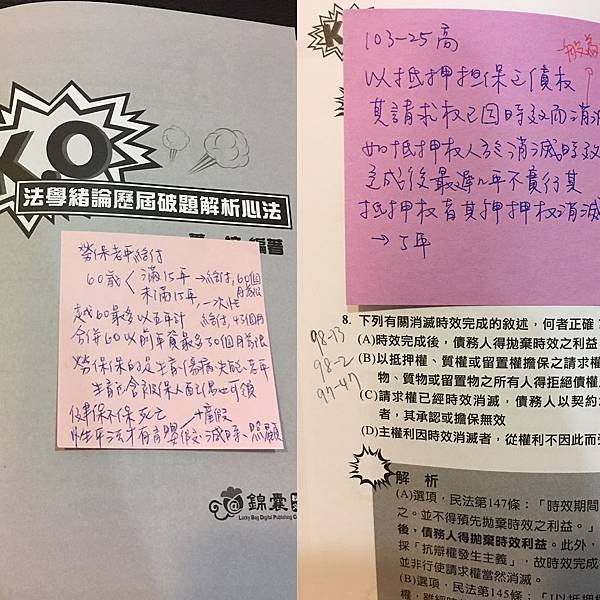 K.O
法學緒論歷屆破題解析心法
編著
勞保老年給付
60歲 滿15年→給付,60個
未滿15年,一次性
越60最多以五年計 給付,45個月
合併60以前年資最多50個月為限
勞保保的是生育傷病失能老年
健保不保死亡 →產假
性平法才有育嬰假、減時、照顧
錦囊
Lucky Bag Digital Publishing
103-25高
以抵押担保之債权
其請求权已因時效而消滅
如抵押权人於消滅時效
完成後最遲几年不實行其
抵押权者其押押权消滅
→5年
98-13
98-2
97-47
8. 下列有關消滅時效完成的敘述,何者正確
(A)時效完成後,債務人得拋棄時效之利益
(B)以抵押權、質權或留置權擔保之請求權
物、質物或留置物之所有人得拒絕債權
(C)請求權已經時效消滅,債務人以契約
者,其承認或擔保無效
(D)主權利因時效消滅者,從權利不因此而
解 析
(A)選項,民法第147條:「時效期間
之。並不得預先拋棄時效之利益。」
後,債務人得拋棄時效利益。此外,
採「抗辯權發生主義」,故時效完成
並非行使請求權當然消滅。
(B)選項,民法第145條:「I以抵押